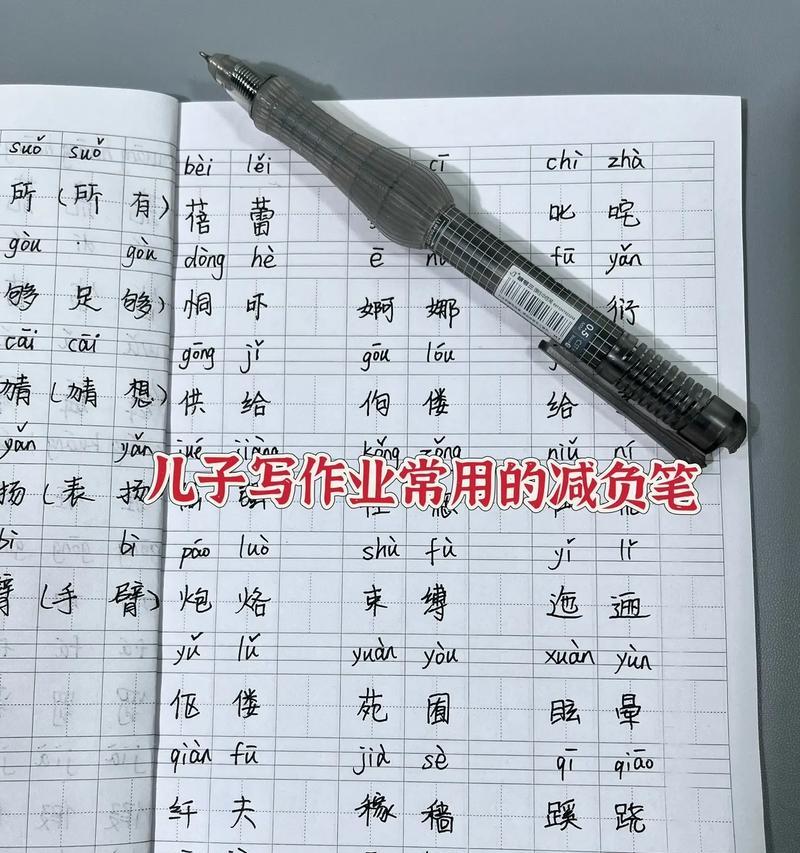 suǒ suǒ
所（所 有）
gòu gòu
够 足 够）
cāi cāi
猜（猜 想）
yáng yáng
扬（表 扬
bì bì
臂（手 臂）
bèi lěi cī chì zhà
蓓 蕾 叱 咤
dòng hè ē fū yǎn
恫 吓 婀 娜 衍
gōng jǐ gōu lóu
供 给 佝 偻 给
jué jiàng kǒng zǒng niǔ ní
儿子写作业常用的减负笔
páo luò shù fù yǐ lǐ
炮 烙 束 缚 迤 逦
yǔ lǚ yuàn yòu xuàn yùn
伛 偻 苑 囿 眩 晕
qiàn fū jià sè qī qiāo
纤 夫 稼 穑 蹊 跷
0.5